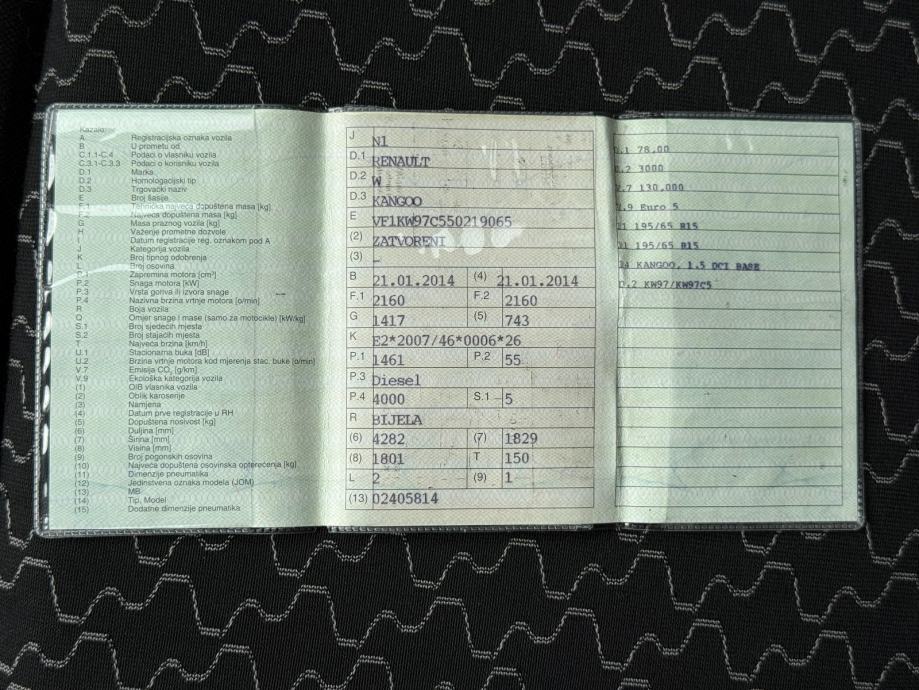 Kazalo:
A Registracijska oznaka vozila
B U prometu od
C.1.1-C.4 Podaci o vlasniku vozila
C.3.1-C.3.3 Podaci o korisniku vozila
D.1 Marka
D.2 Homologacijski tip
D.3 Trgovački naziv
E Broj šasije
F.1 Tehnička najveća dopuštena masa [kg]
F.2 Najveća dopuštena masa [kg]
G Masa praznog vozila [kg]
H Važenje prometne dozvole
I Datum registracije reg. oznakom pod A
J Kategorija vozila
K Broj tipnog odobrenja
L Broj osovina
P.1 Zapremina motora [cm³]
P.2 Snaga motora [kW]
P.3 Vrsta goriva ili izvora snage
P.4 Nazivna brzina vrtnje motora [o/min]
R Boja vozila
Q Omjer snage i mase (samo za motocikle) [kW/kg]
S.1 Broj sjedećih mjesta
S.2 Broj stajaćih mjesta
T Najveća brzina [km/h]
U.1 Stacionarna buka [dB]
U.2 Brzina vrtnje motora kod mjerenja stac. buke [o/min]
V.7 Emisija CO₂ [g/km]
V.9 Ekološka kategorija vozila
(1) OIB vlasnika vozila
(2) Oblik karoserije
(3) Namjena
(4) Datum prve registracije u RH
(5) Dopuštena nosivost [kg]
(6) Duljina [mm]
(7) Širina [mm]
(8) Visina [mm]
(9) Broj pogonskih osovina
(10) Najveća dopuštena osovinska opterećenja [kg]
(11) Dimenzije pneumatika
(12) Jedinstvena oznaka modela (JOM)
(13) MB
(14) Tip, Model
(15) Dodatne dimenzije pneumatika
J N1
D.1 RENAULT
D.2 W
D.3 KANGOO
E VF1KW97C550219065
(2) ZATVORENI
(3) –
B 21.01.2014 (4) 21.01.2014
F.1 2160 F.2 2160
G 1417 (5) 743
K E2*2007/46*0006*26
P.1 1461 P.2 55
P.3 Diesel
P.4 4000 S.1 5
R BIJELA
(6) 4282 (7) 1829
(8) 1801 T 150
L 2 (9) 1
(13) 02405814
.1 78,00
.2 3000
.7 130,000
.9 Euro 5
195/65 R15
195/65 R15
KANGOO, 1.5 DCI BASE
.2 KW97/KW97C5